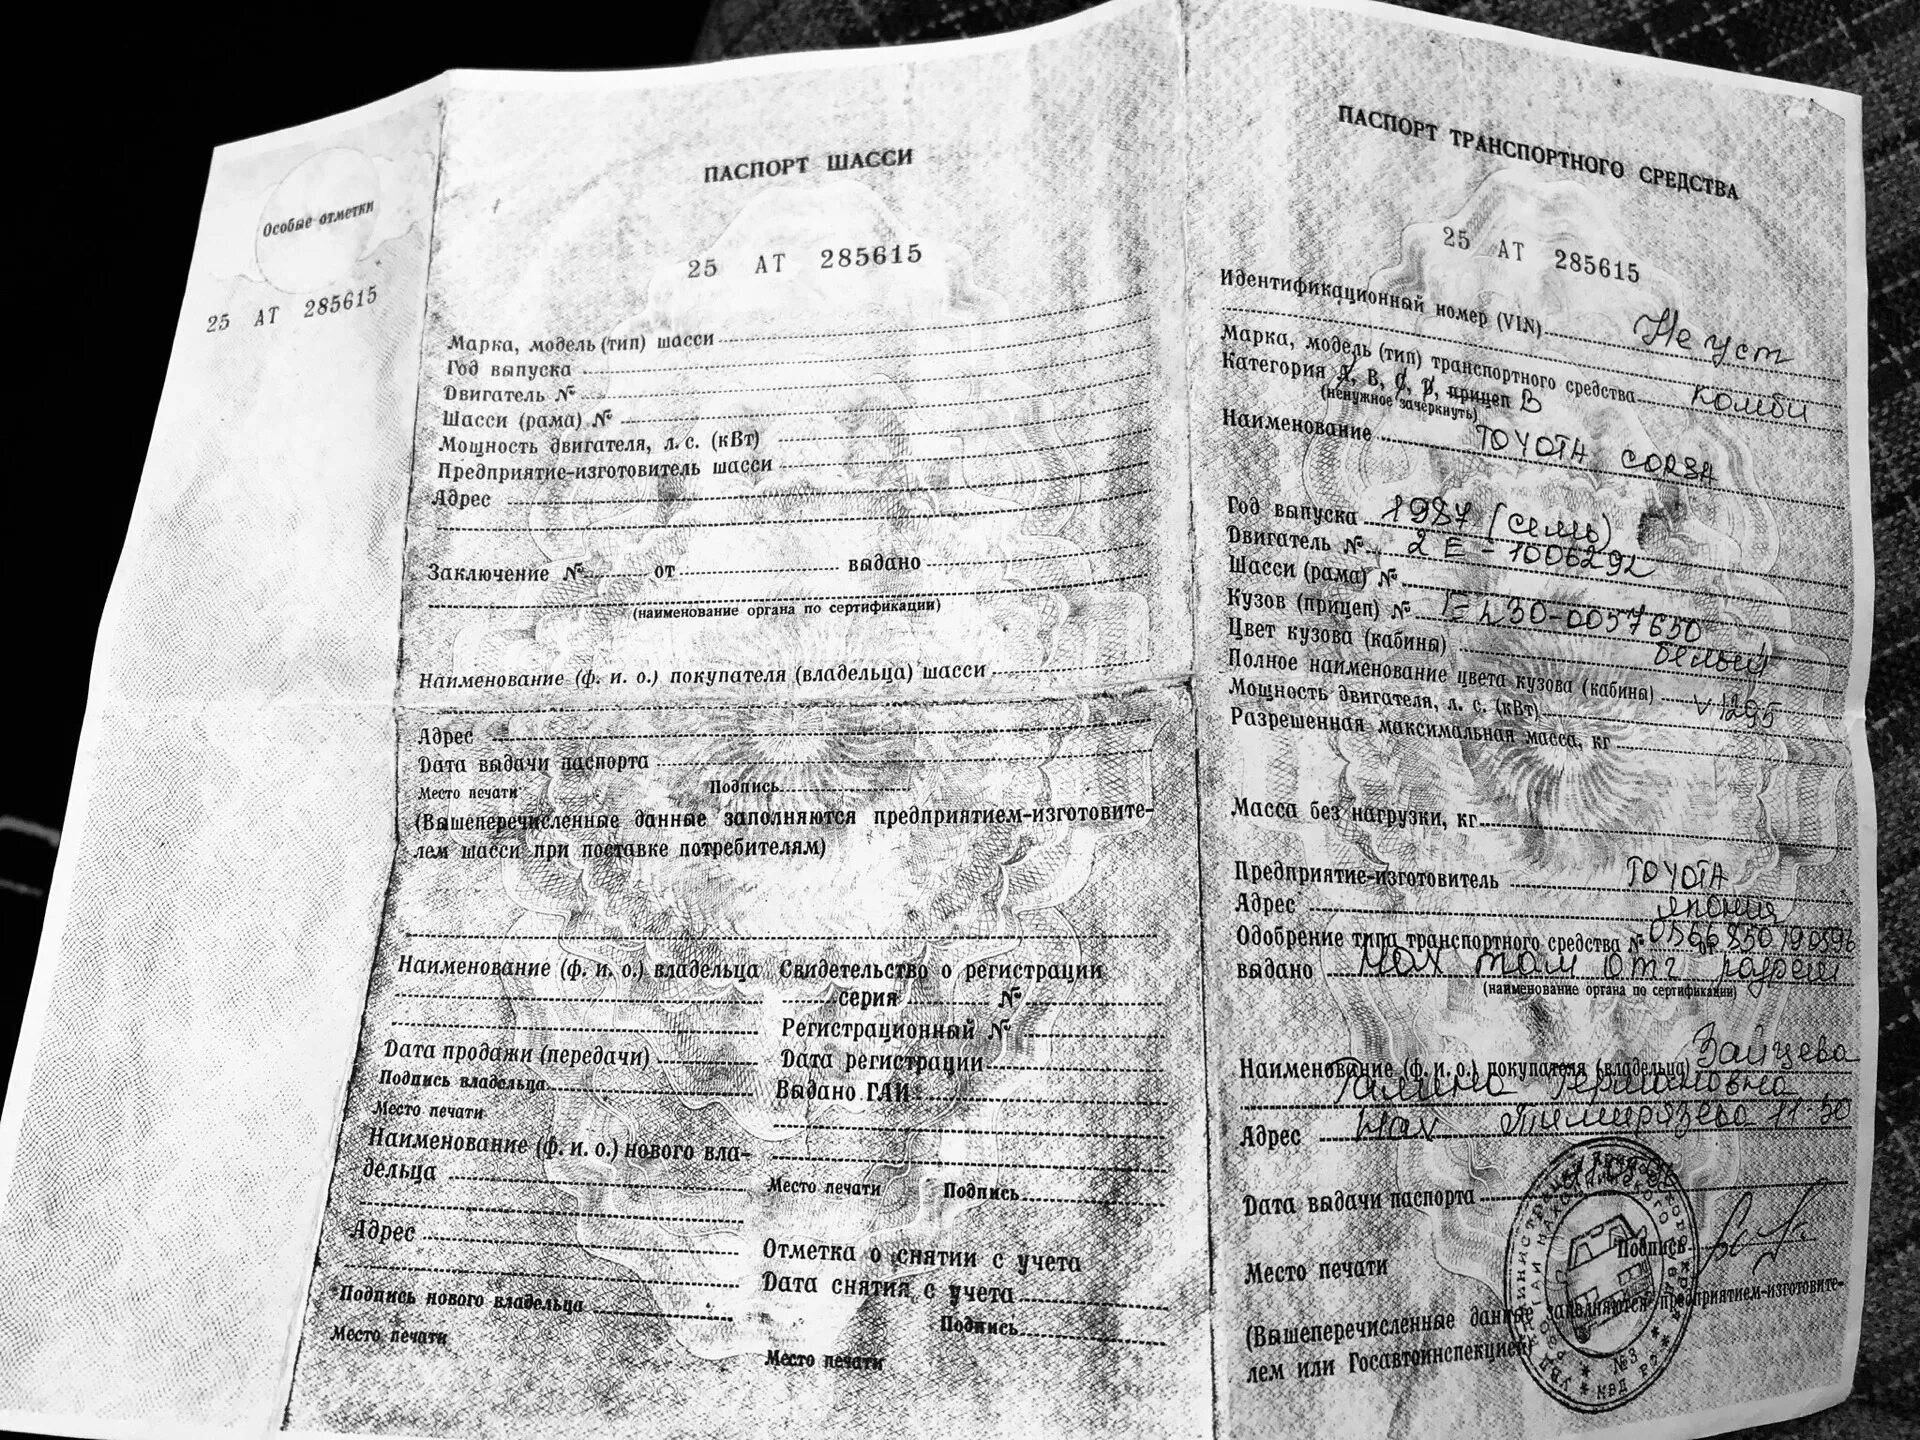 Особые отметки
25 АТ 285615
ПАСПОРТ ШАССИ
25 АТ 285615
Марка, модель (тип) шасси
Год выпуска
Двигатель №
Шасси (рама) №
Мощность двигателя, л. с. (кВт)
Предприятие-изготовитель шасси
Адрес
Заключение № от выдано
(наименование органа по сертификации)
Наименование (ф. и. о.) покупателя (владельца) шасси
Адрес
Дата выдачи паспорта
Место печати Подпись
(Вышеперечисленные данные заполняются предприятием-изготовите-
лем шасси при поставке потребителям)
Наименование (ф. и. о.) владельца
Дата продажи (передачи)
Подпись владельца
Место печати
Наименование (ф. и. о.) нового вла-
дельца
Адрес
Подпись нового владельца
Место печати
Свидетельство о регистрации
серия №
Регистрационный №
Дата регистрации
Выдано ГАИ
Место печати Подпись
Отметка о снятии с учета
Дата снятия с учета
Подпись
Место печати
ПАСПОРТ ТРАНСПОРТНОГО СРЕДСТВА
25 АТ 285615
Идентификационный номер (VIN) Не уст
Марка, модель (тип) транспортного средства комби
Категория А, В, С, D, прицеп В
(ненужное зачеркнуть)
Наименование TOYOTA CORSA
Год выпуска 1987 (семь)
Двигатель № 2E-1006292
Шасси (рама) №
Кузов (прицеп) № EL30-0057650
Цвет кузова (кабины) белый
Полное наименование цвета кузова (кабины)
Мощность двигателя, л. с. (кВт) V 1295
Разрешенная максимальная масса, кг
Масса без нагрузки, кг
Предприятие-изготовитель TOYOTA
Адрес Япония
Одобрение типа транспортного средства № от
выдано Нах там
(наименование органа по сертификации)
Наименование (ф. и. о.) покупателя (владельца) Зайцева
Галина Германовна
Адрес Нах Тимирязева 11-30
Дата выдачи паспорта
Место печати Подпись
(Вышеперечисленные данные заполняются предприятием-изготовите-
лем или Госавтоинспекцией)
№3